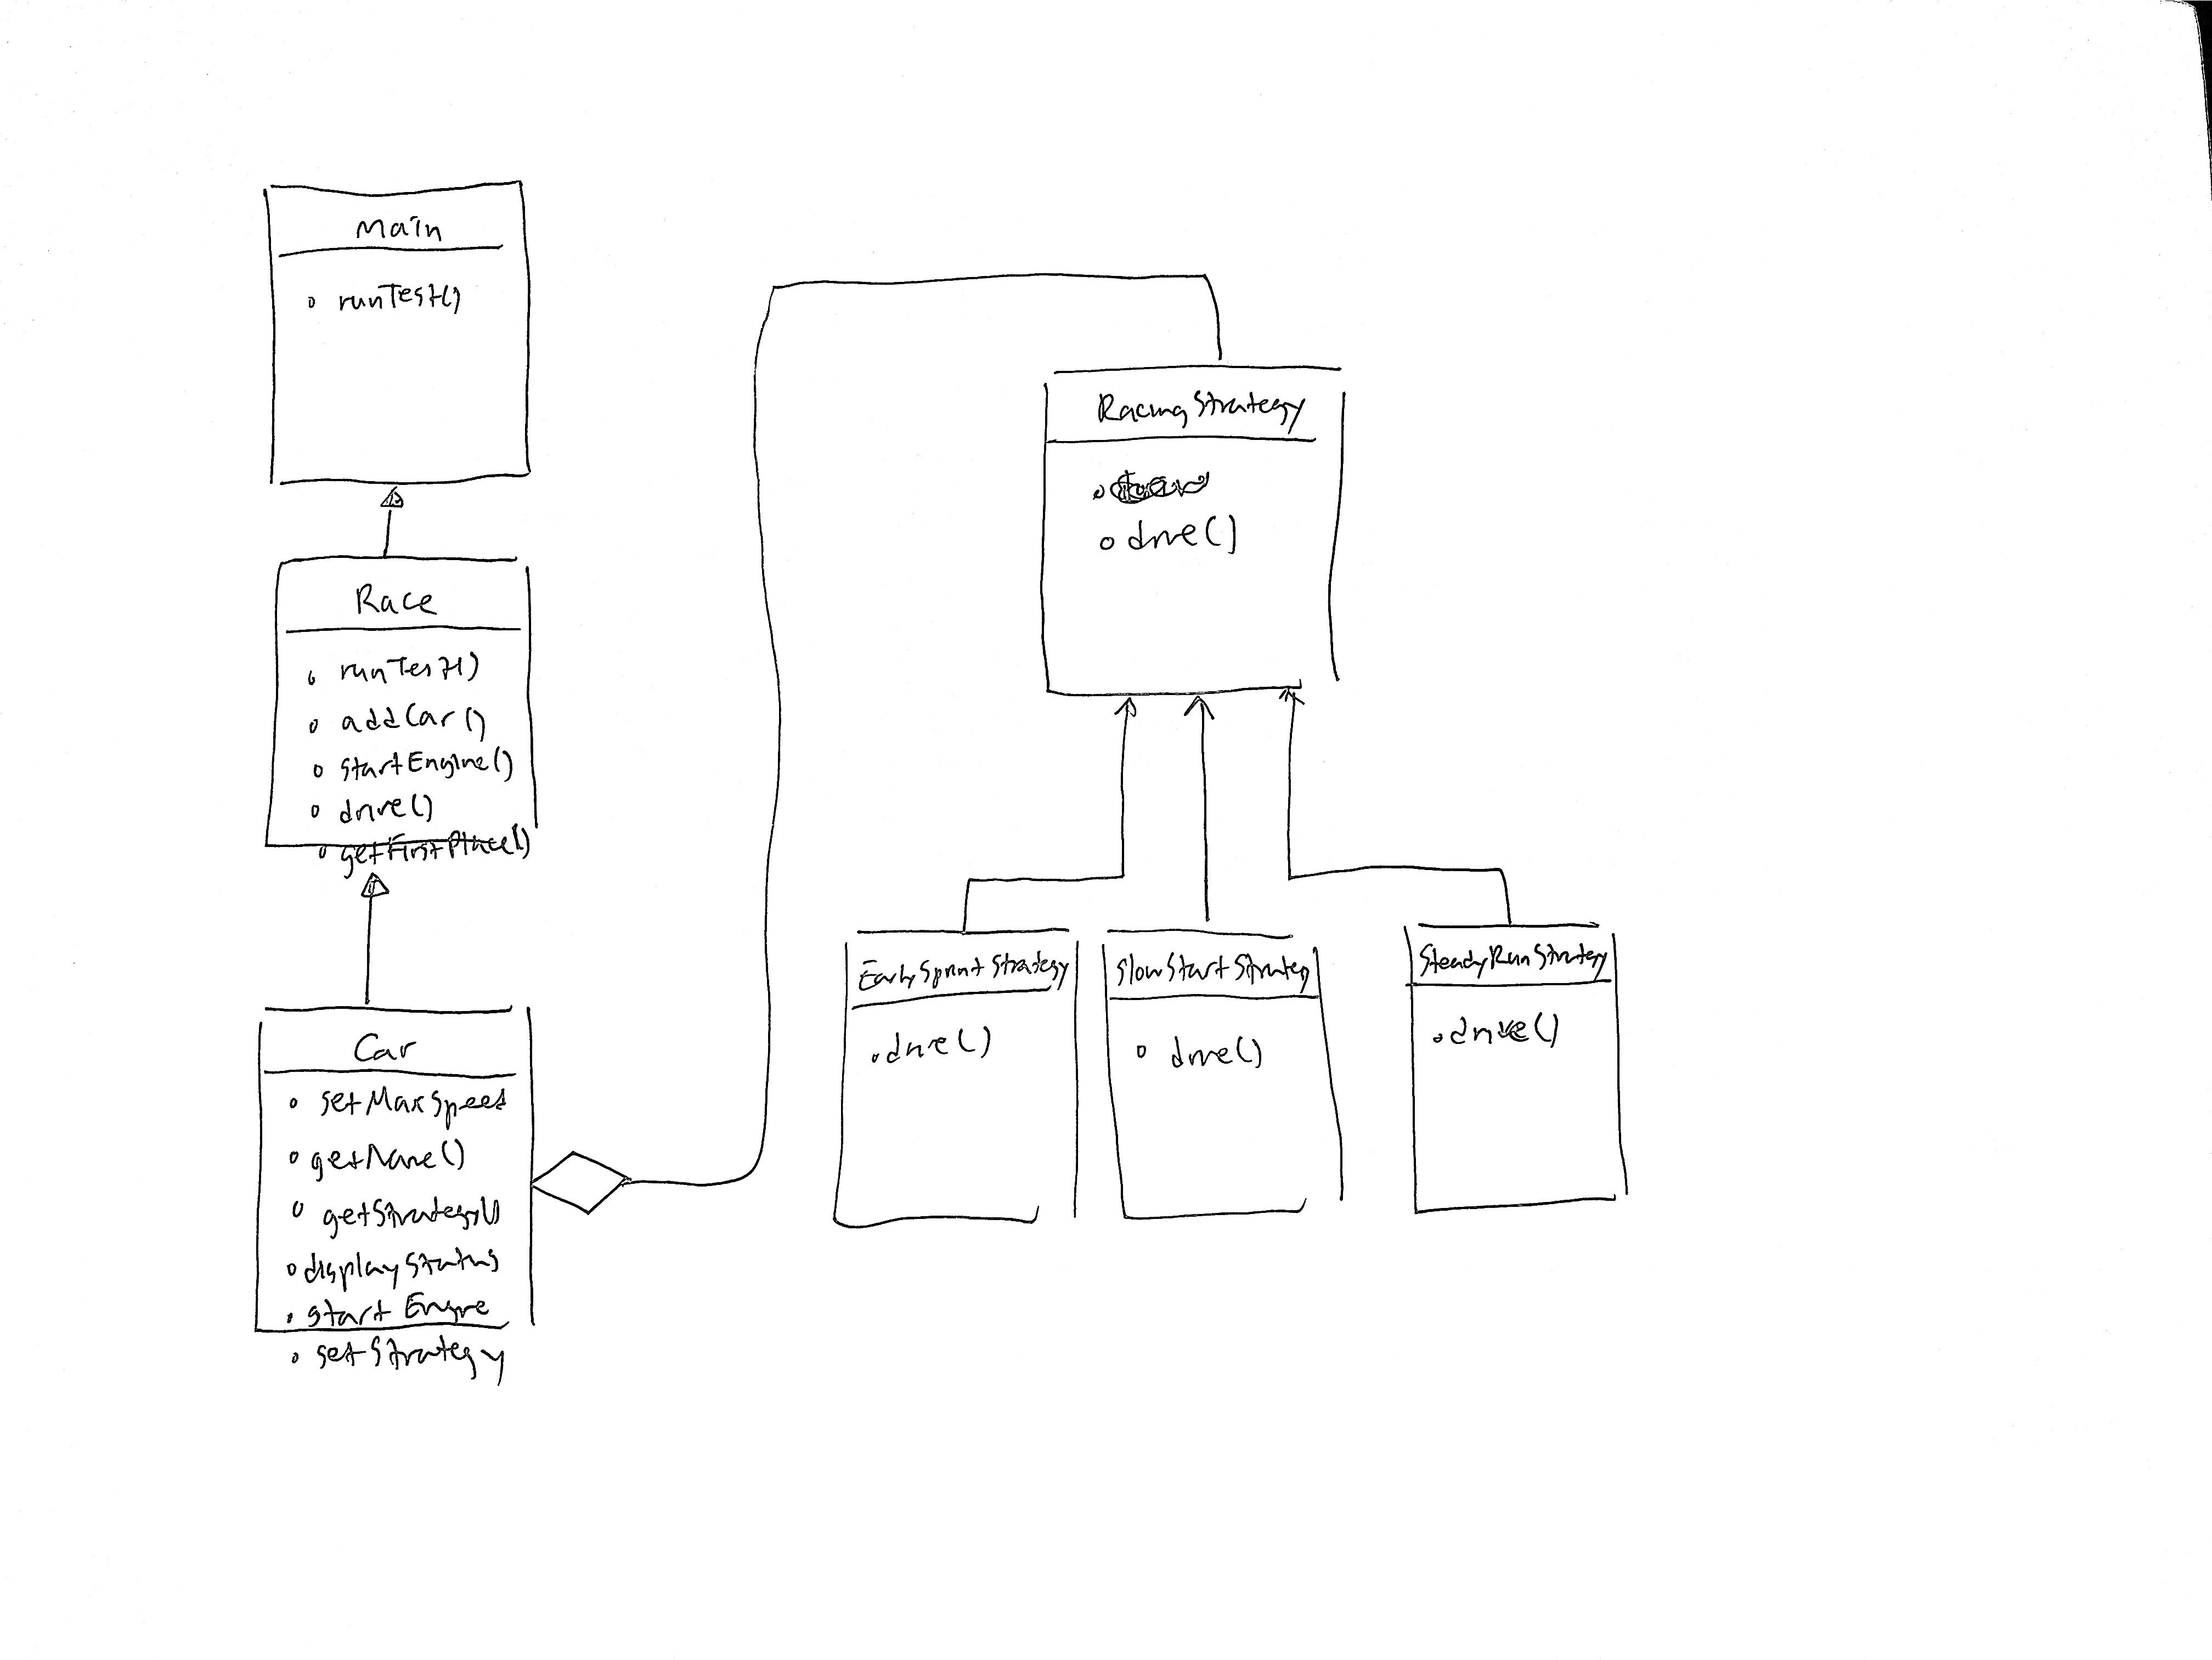 Main
runTest()
Race
runTest()
addCar()
startEngine()
drive()
getFirstPlace()
Car
setMaxSpeed
getName()
getStrategy()
displayStatus
start Engine
setStrategy
RacingStrategy
drive()
EarlySprintStrategy
drive()
SlowStartStrategy
drive()
SteadyRunStrategy
drive()